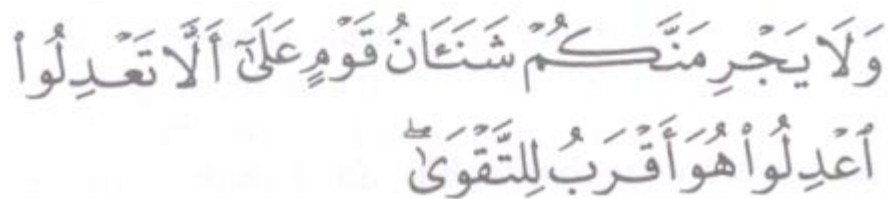 وَلَا يَجْرِمَنَّكُمْ شَنَـَٔانُ قَوْمٍ عَلَىٰٓ أَلَّا تَعْدِلُوا۟
ٱعْدِلُوا۟ هُوَ أَقْرَبُ لِلتَّقْوَىٰ ۖ